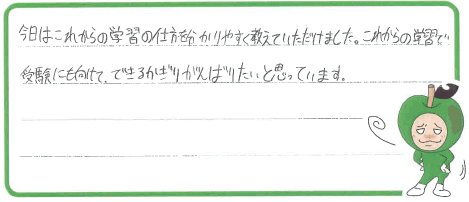 今日はこれからの学習の仕方を分かりやすく教えていただけました。これからの学習で
受験にも向けて、できるかぎりがんばりたいと思っています。